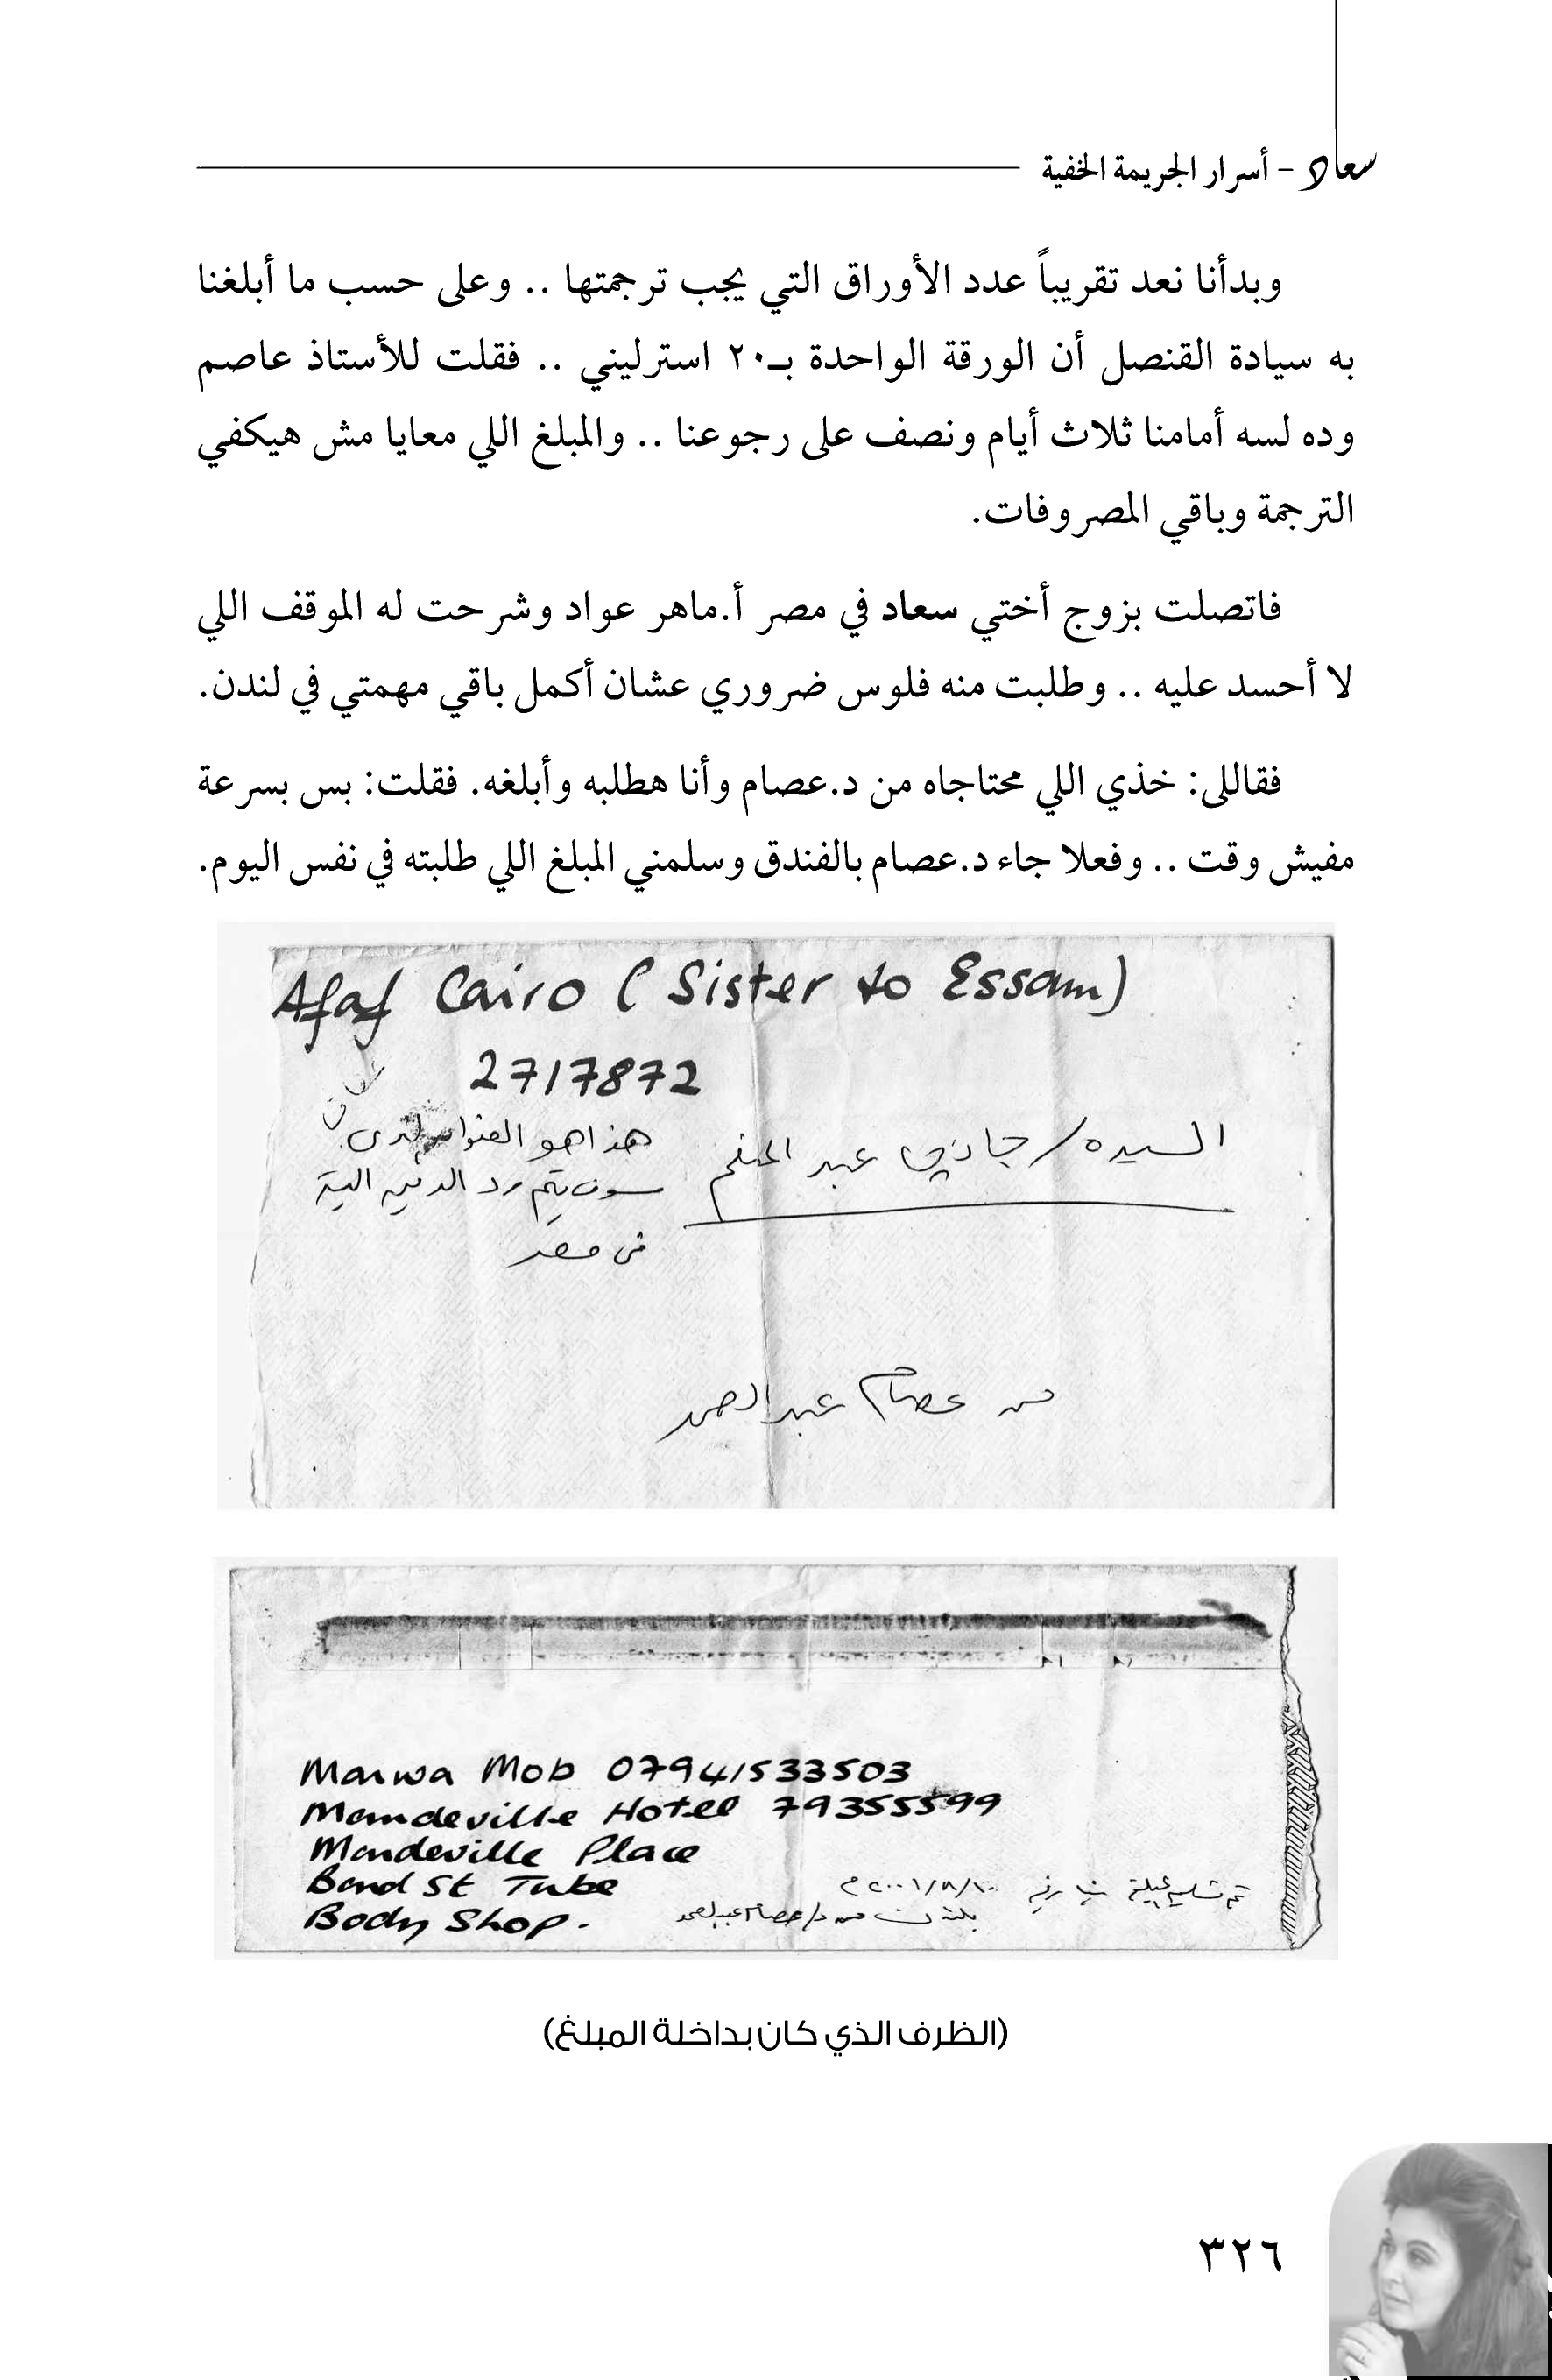 سعاد - أسرار الجريمة الخفية
وبدأنا نعد تقريباً عدد الأوراق التي يجب ترجمتها .. وعلى حسب ما أبلغنا
به سيادة القنصل أن الورقة الواحدة بـ٢٠ استرليني .. فقلت للأستاذ عاصم
وده لسه أمامنا ثلاث أيام ونصف على رجوعنا .. والمبلغ اللي معايا مش هيكفي
الترجمة وباقي المصروفات.
فاتصلت بزوج أختي سعاد في مصر أ.ماهر عواد وشرحت له الموقف اللي
لا أحسد عليه .. وطلبت منه فلوس ضروري عشان أكمل باقي مهمتي في لندن.
فقاللى: خذي اللي محتاجاه من د.عصام وأنا هطلبه وأبلغه. فقلت: بس بسرعة
مفيش وقت .. وفعلا جاء د.عصام بالفندق وسلمني المبلغ اللي طلبته في نفس اليوم.
Afaf Cairo (Sister to Essam)
2717872
السيده/ عبد المنعم
هذا هو العنوان لدى
سوف يتم رد الدين الية
فى مصر
من عصام عبد الصمد
Marwa Mob 07941533503
Mandeville Hotel 79355599
Mandeville Place
Bond St Tube
Body Shop.
تم تسليم ٢٠٠١/٨/١٠ م
بلندن من د/عصام عبدالصمد
(الظرف الذي كان بداخلة المبلغ)
٣٢٦